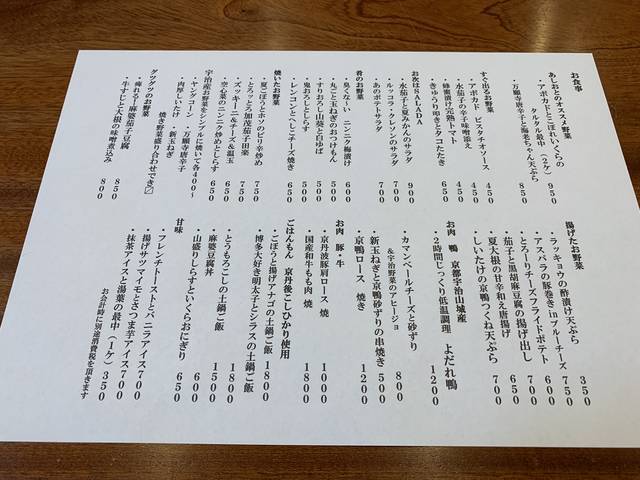 お食事
あしおとのオススメ野菜
・アボカドとこぼれいくらの
タルタル最中(2ケ) 850
・万願寺唐辛子と海老ちゃん天ぷら 750
すぐ出るお野菜
・アボカド ピスタチオソース 450
・水茄子の辛子味噌添え 450
・蜂蜜漬け完熟トマト 450
・きゅうり叩きとタコたたき 650
お次はSALADA
・水茄子と夏みかんのサラダ 900
・ルッコラ・クレソンのサラダ 700
・あのポテトサラダ 700
肴のお野菜
・臭くな~い ニンニク梅漬け 600
・丸ごと玉ねぎのおつけもん 500
・すりおろし山葵と白ゆば 500
・鬼おろしとしらす 500
・レンコンとへしこチーズ焼き 650
焼いたお野菜
・夏ごぼうとホソのピリ辛炒め 750
・とろっとろ加茂茄子田楽 750
・ズッキーニ&チーズ&温玉 650
・空心菜のニンニク炒めとしらす 650
宇治産お野菜をシンプルに焼いて各400~
・ヤングコーン ・万願寺唐辛子
・肉厚しいたけ ・新玉ねぎ
焼き野菜盛り合わせでき〼
グツグツのお野菜
・痺れるー麻婆茄子豆腐 850
・牛すじと大根の味噌煮込み 800
揚げたお野菜
・ラッキョウの酢漬け天ぷら 350
・アスパラの豚巻きinブルーチーズ 750
・とろーりチーズフライドポテト 600
・茄子と黒胡麻豆腐の揚げ出し 650
・夏大根の甘辛和え唐揚げ 650
・しいたけの京鴨つくね天ぷら 700
お肉 鴨 京都宇治山城産
・2時間じっくり低温調理 よだれ鴨 1200
・カマンベールチーズと砂ずり
&宇治野菜のアヒージョ 800
・新玉ねぎと京鴨砂ずりの串焼き 500
・京鴨ロース 焼き 1200
お肉 豚・牛
・京丹波豚肩ロース 焼 1000
・国産和牛もも肉 焼 1800
ごはんもん 京丹後こしひかり使用
・ごぼうと揚げアナゴの土鍋ご飯 1800
・博多大好き明太子とシラスの土鍋ご飯 1800
・とうもろこしの土鍋ご飯 1800
・麻婆豆腐丼 1500
・山盛りしらすといくらおにぎり 600
甘味
・フレンチトーストとバニラアイス 700
・揚げサツマイモとさつま芋アイス 700
・抹茶アイスと湯葉の最中(1ケ) 350
お会計時に別途消費税を頂きます